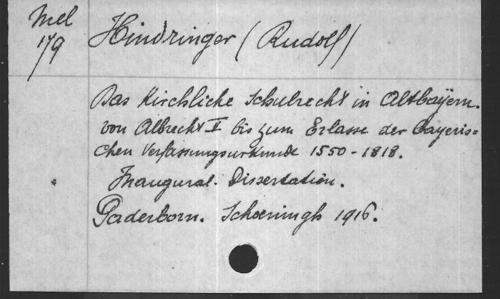 Mel
179
Hindringer (Rudolf)
Das Kirchliche Schulrecht in Altbayern.
von Albrecht V bis zum Erlasse der Bayeris=
chen Verfassungsurkunde 1550-1818.
Inaugural-Dissertation.
Paderborn. Schoeningh 1916.